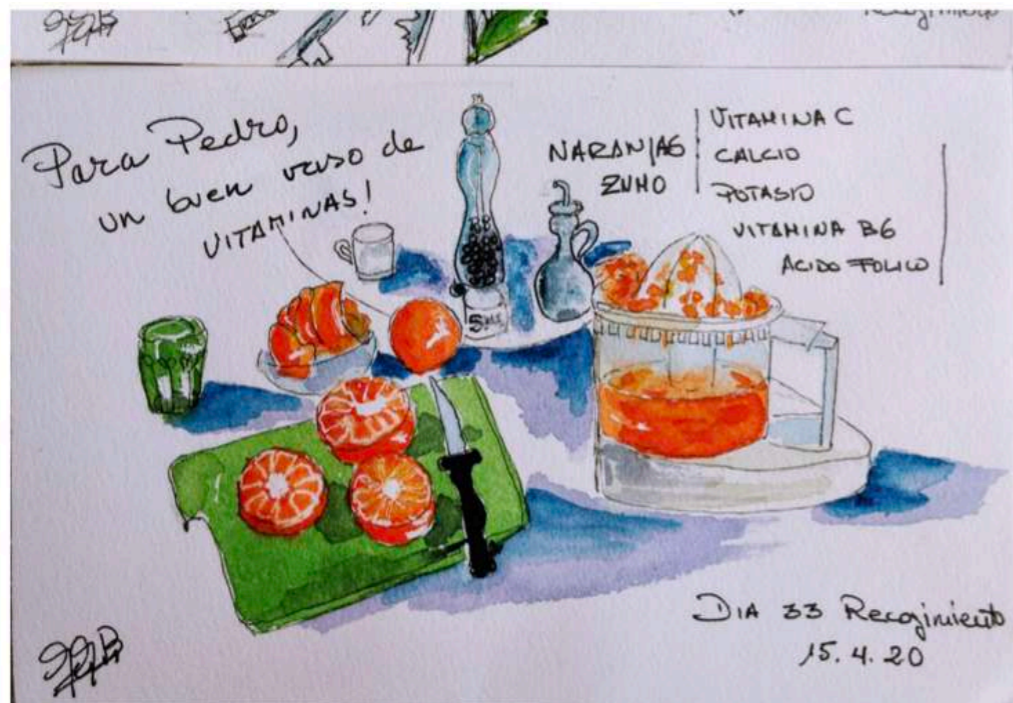 Recogimiento
Para Pedro,
un buen vaso de
VITAMINAS!
NARANJAS
ZUMO
VITAMINA C
CALCIO
POTASIO
VITAMINA B6
ACIDO FOLICO
DIA 33 Recogimiento
15.4.20